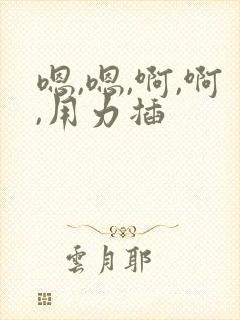 嗯,嗯,啊,啊
,用力插
雲月耶